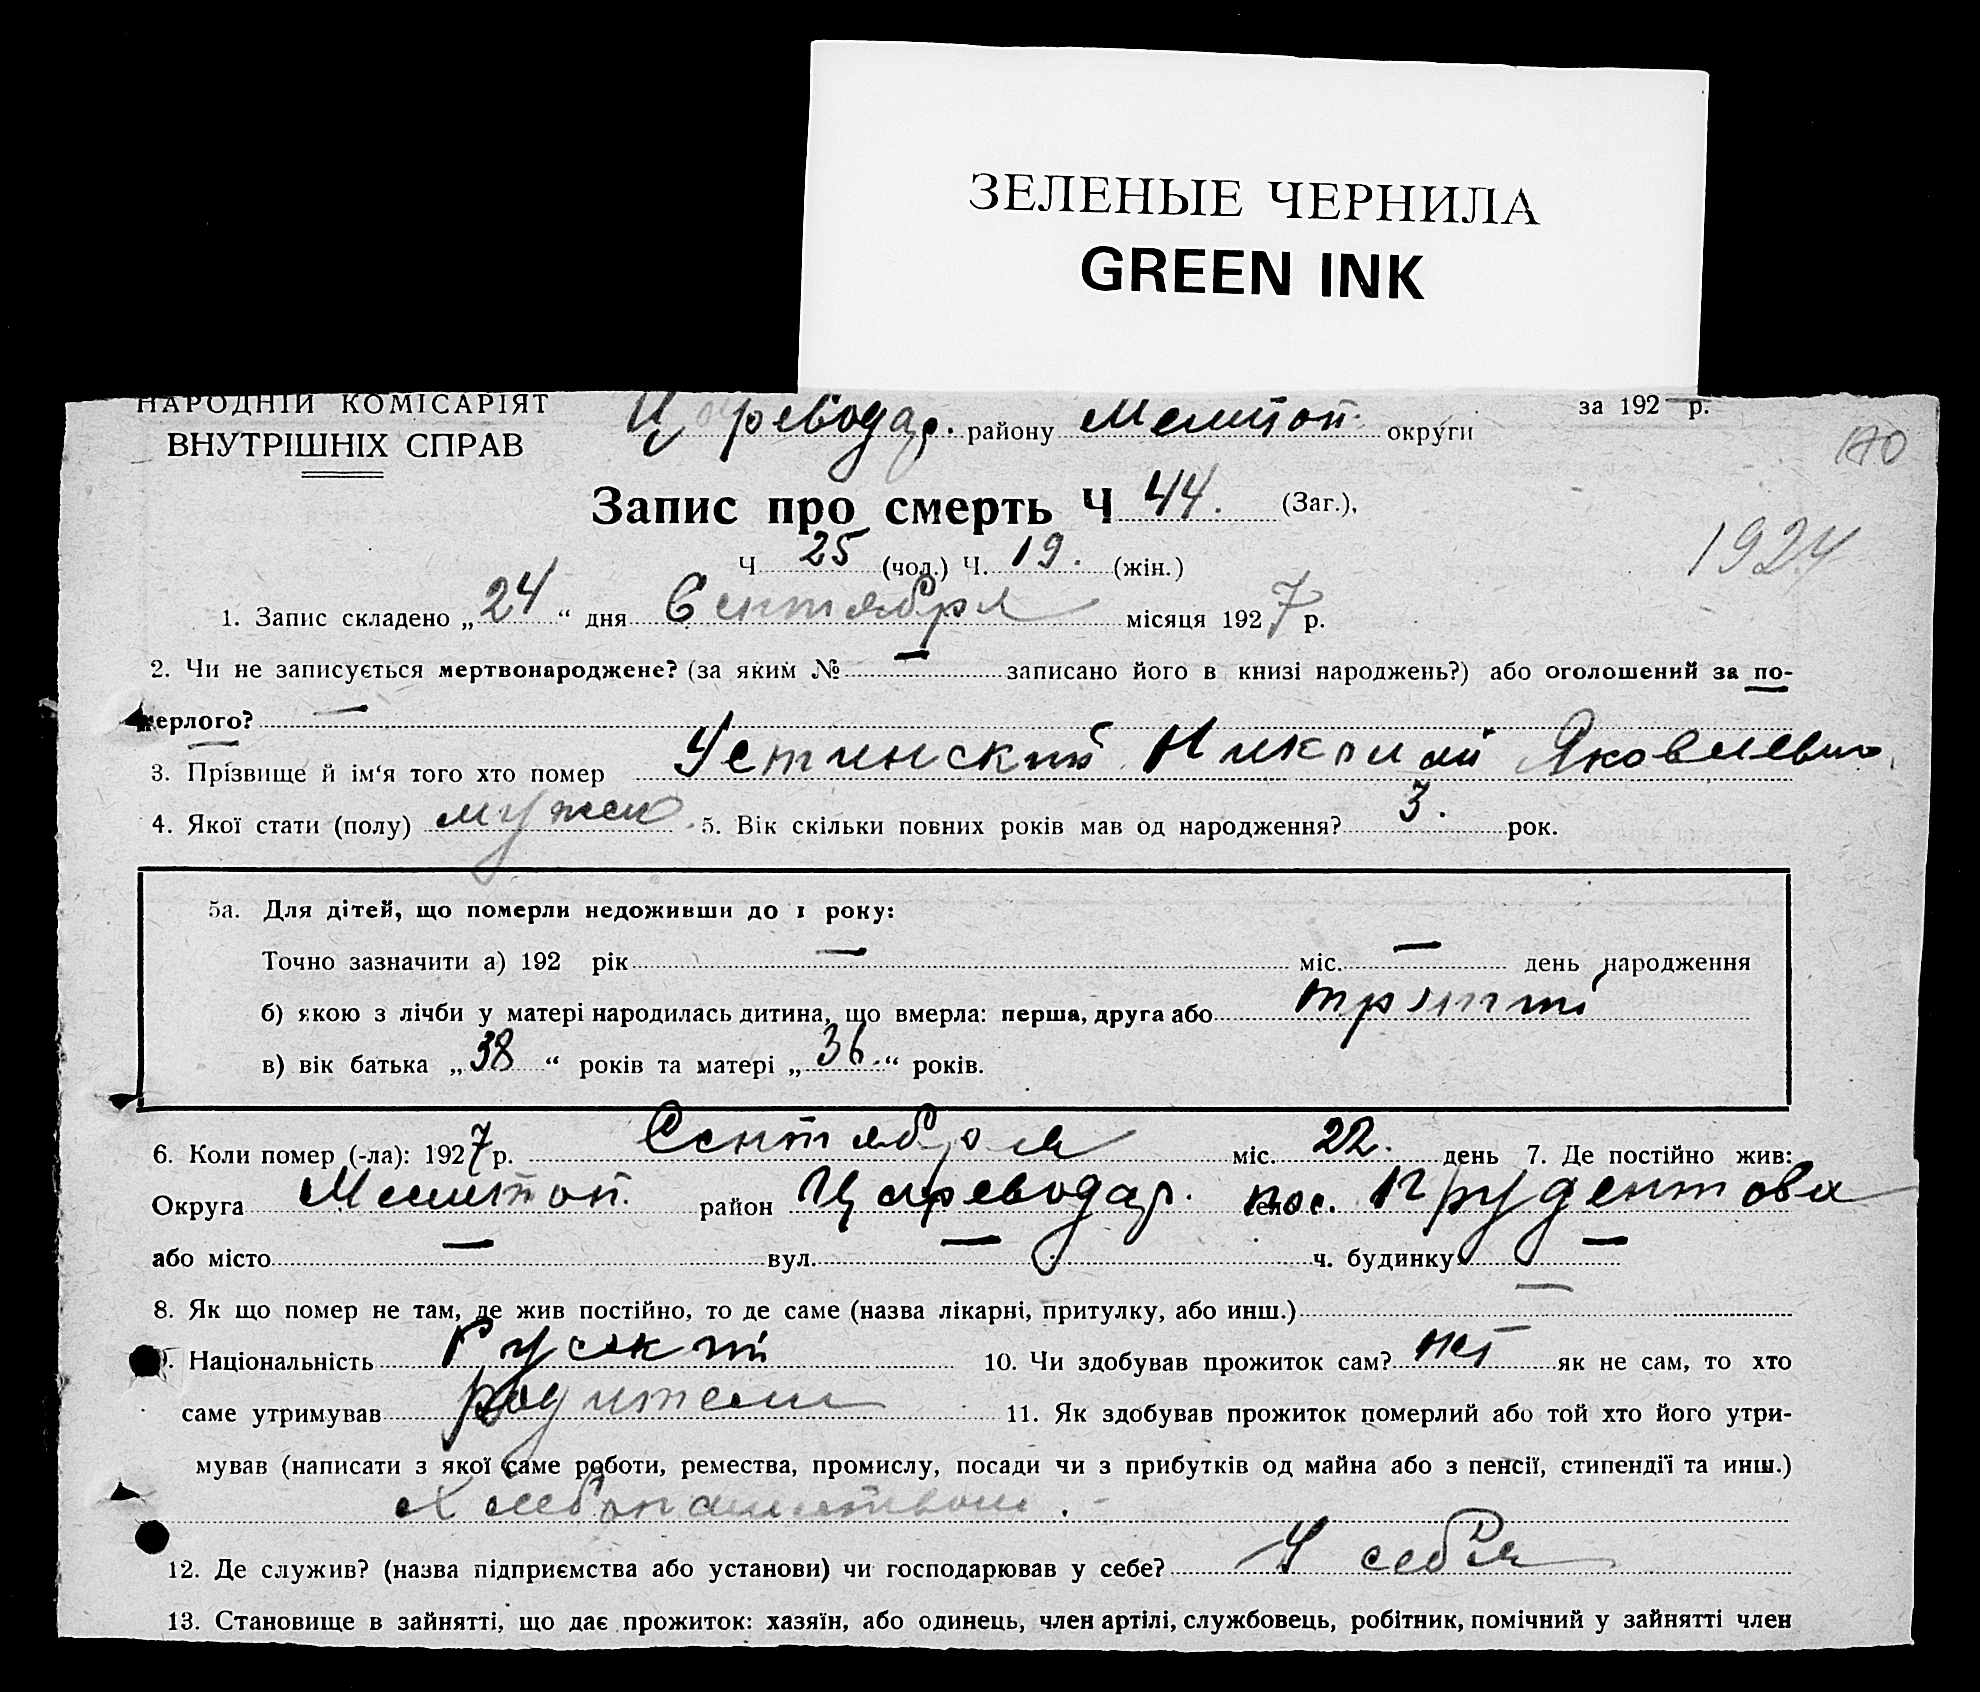 ЗЕЛЕНЫЕ ЧЕРНИЛА
GREEN INK
НАРОДНІЙ КОМІСАРІЯТ
ВНУТРІШНІХ СПРАВ
Цареводар. району Мелитоп. округи
за 192 р.
170
Запис про смерть Ч 44. (Заг.),
Ч 25 (чол.) Ч. 19. (жін.)
1927
1. Запис складено „24“ дня Сентября місяця 1927 р.
2. Чи не записується мертвонароджене? (за яким № — записано його в книзі народжень?) або оголошений за по-
мерлого? —
3. Прізвище й ім‘я того хто помер Устинский Николай Яковлевич
4. Якої стати (полу) мужск. 5. Вік скільки повних років мав од народження? 3. рок.
5а. Для дітей, що померли недоживши до 1 року:
Точно зазначити а) 192 рік — міс. — день народження
б) якою з лічби у матері народилась дитина, що вмерла: перша, друга або третий
в) вік батька „38“ років та матері „36.“ років.
6. Коли помер (-ла): 1927 р. Сентября міс. 22. день 7. Де постійно жив:
Округа Мелитоп. район Цареводар. пос. Прудентова
або місто — вул. — ч. будинку —
8. Як що помер не там, де жив постійно, то де саме (назва лікарні, притулку, або инш.) —
9. Національність Руский 10. Чи здобував прожиток сам? ні як не сам, то хто
саме утримував родители 11. Як здобував прожиток померлий або той хто його утри-
мував (написати з якої саме роботи, ремества, промислу, посади чи з прибутків од майна або з пенсії, стипендії та инш.)
Хлебопашеством. -
12. Де служив? (назва підприємства або установи) чи господарював у себе? У себя
13. Становище в зайнятті, що дає прожиток: хазяїн, або одинець, член артілі, службовець, робітник, помічний у зайнятті член